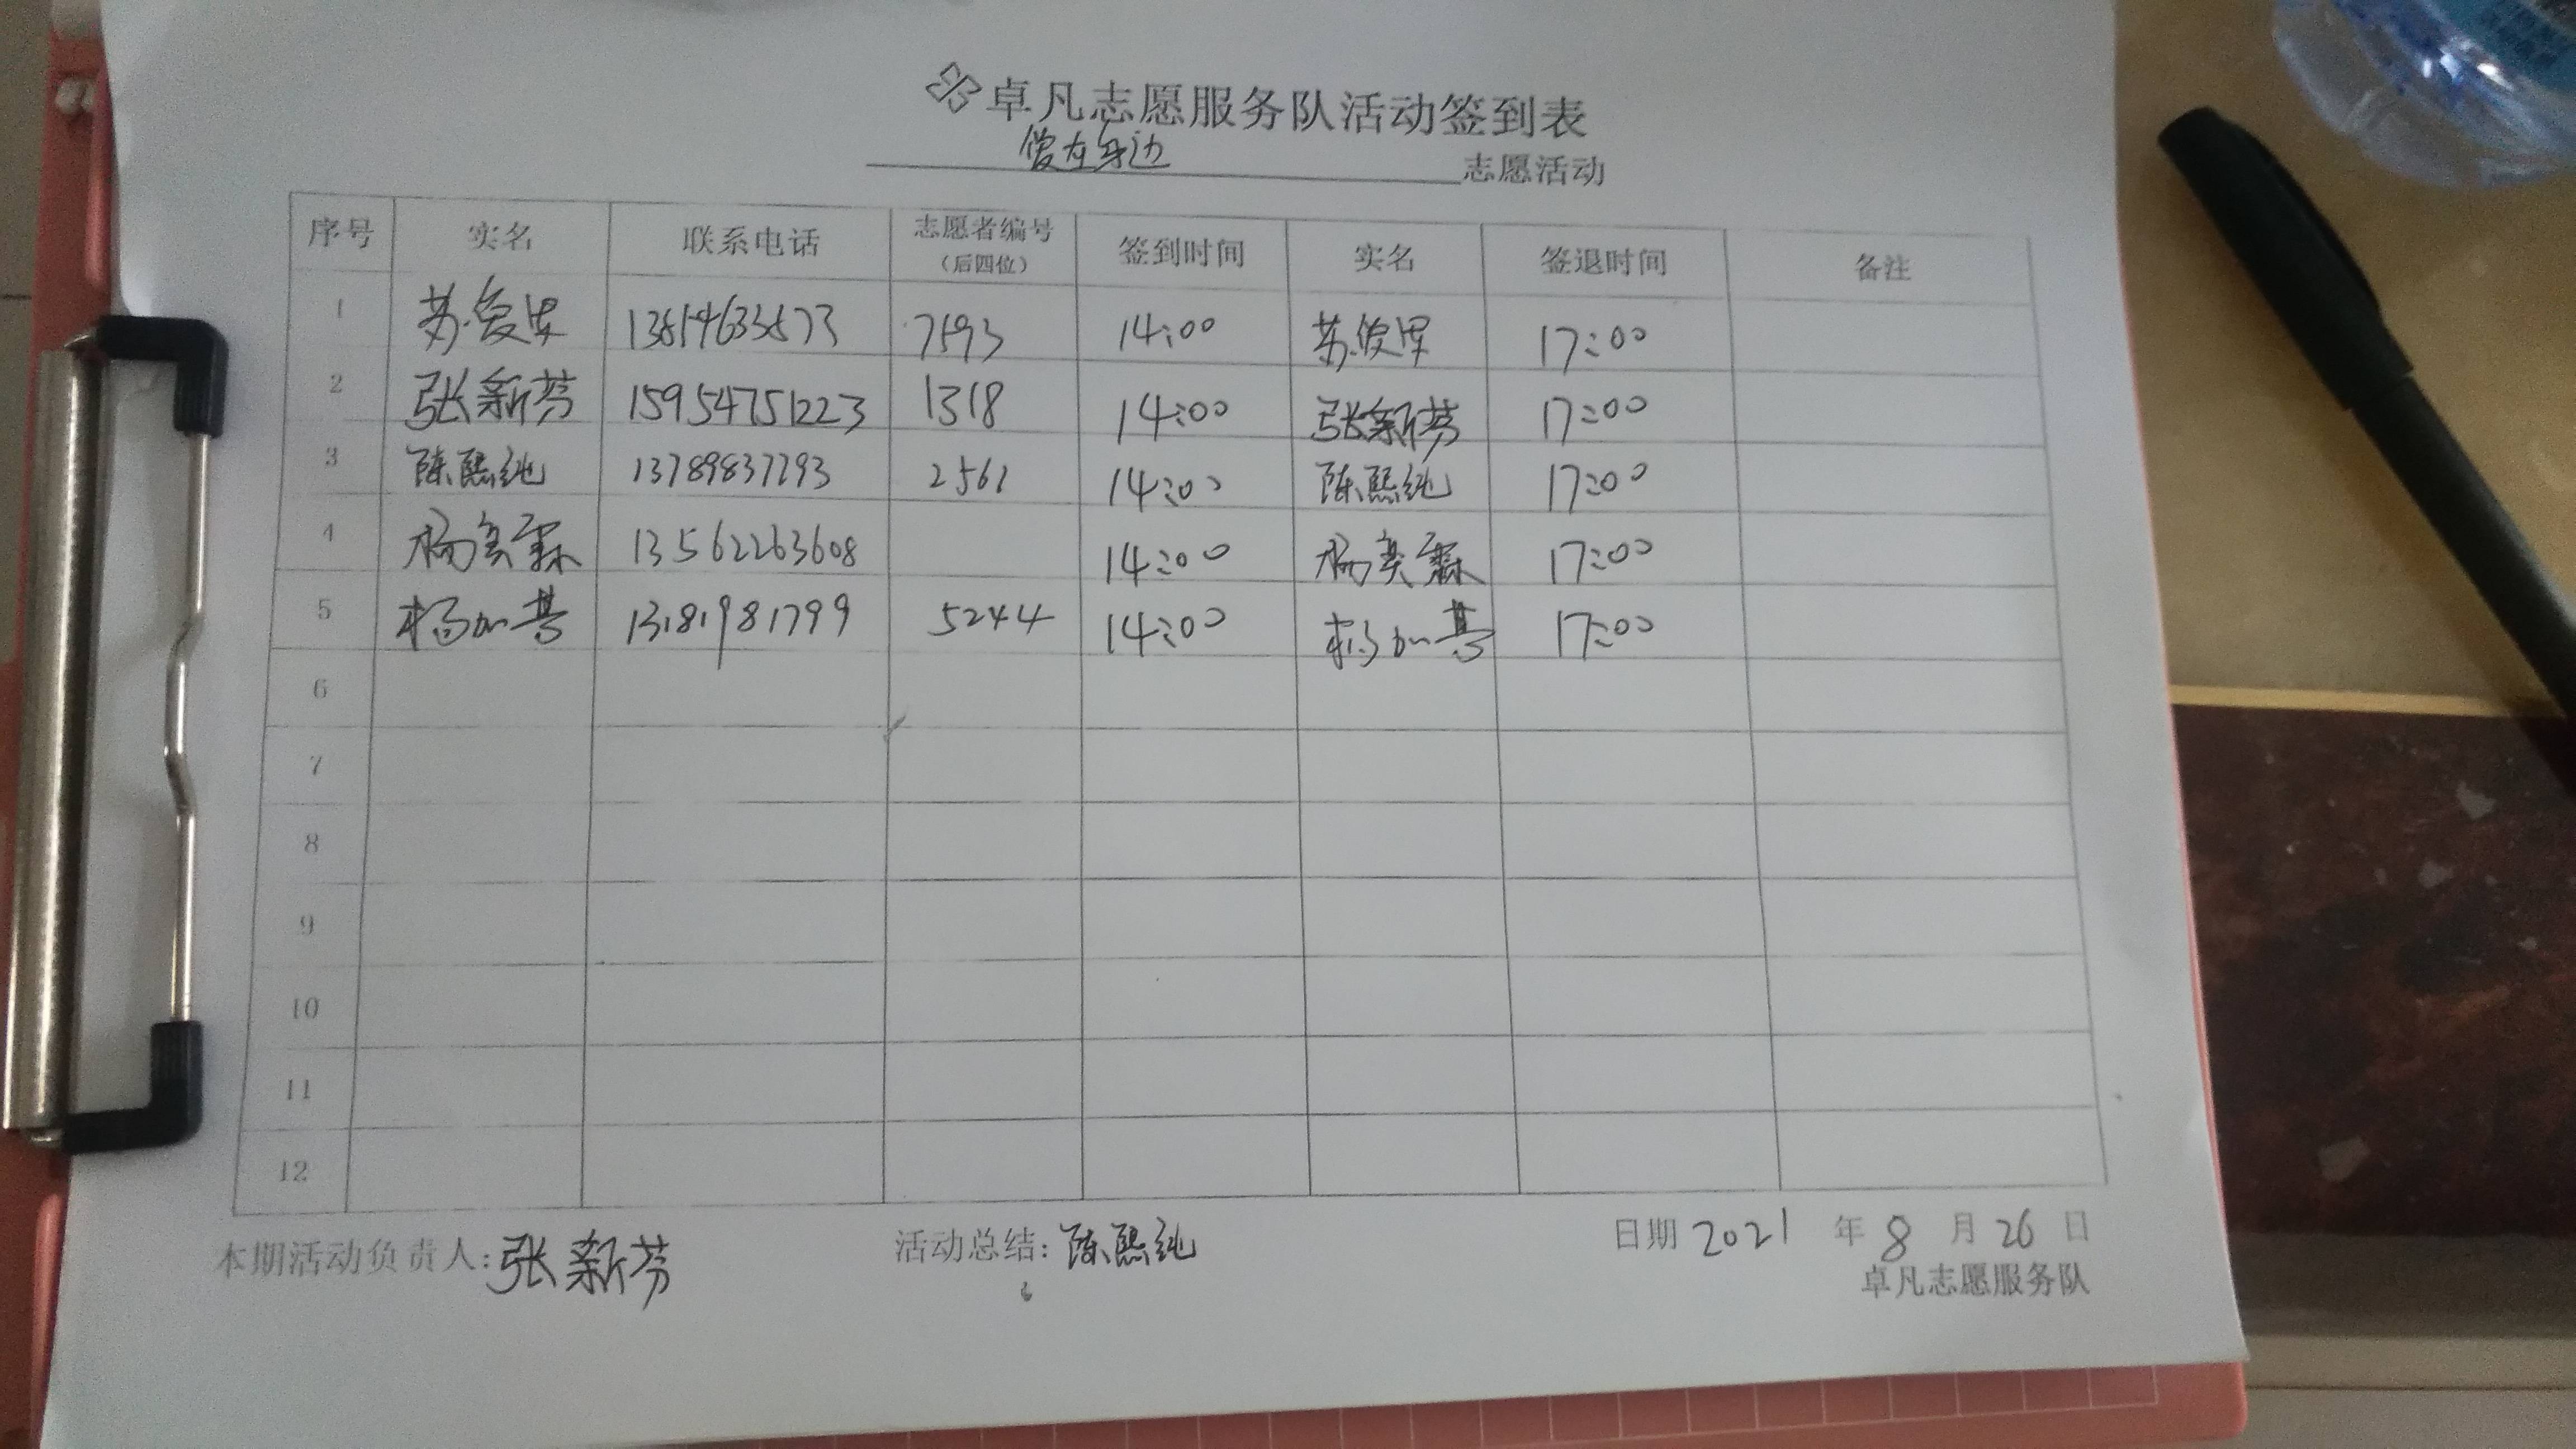 卓凡志愿服务队活动签到表
爱在身边 志愿活动
序号 实名 联系电话 志愿者编号（后四位） 签到时间 实名 签退时间 备注
1 苏俊 7593 14:00 苏俊 17:00
2 张新芬 15954751223 1318 14:00 张新芬 17:00
3 陈熙纯 13789837793 2561 14:00 陈熙纯 17:00
4 杨奕霖 13562263608 14:00 杨奕霖 17:00
5 杨加营 13181981799 5244 14:00 杨加营 17:00
6
7
8
9
10
11
12
本期活动负责人:张新芬 活动总结:陈熙纯 日期 2021 年 8 月 26 日
卓凡志愿服务队